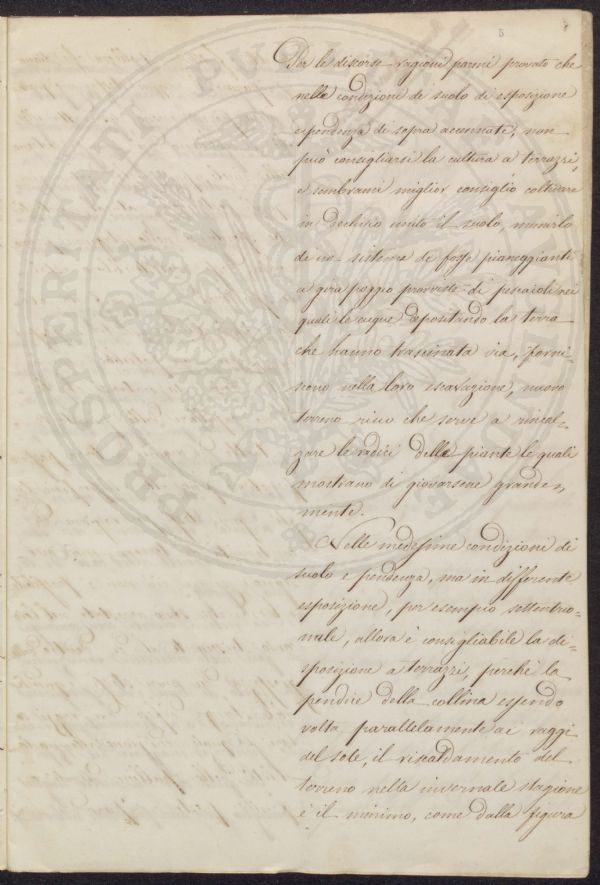 5
Per le discorse ragioni parmi provato che
nelle condizioni di suolo di esposizione
e pendenza di sopra accennate, non
può consigliarsi la cultura a terrazzi,
e sembrami miglior consiglio coltivare
in declivio unito il suolo, munirlo
di un sistema di fosse pianeggianti
a gira poggio provviste di pescaioli nei
quali le acque depositando la terra
che hanno trascinata via, forni=
scono nella loro escavazione, nuovo
terreno ricco che serve a rincal=
zare le radici delle piante le quali
mostrano di giovarsene grande=
mente.
Nelle medesime condizioni di
suolo e pendenza, ma in differente
esposizione, per esempio settentrio=
nale, allora è consigliabile la di=
sposizione a terrazzi, perchè la
pendice della collina essendo
volta parallelamente ai raggi
del sole, il riscaldamento del
terreno nella invernale stagione
è il minimo, come dalla figura
PROSPERITATI PUBLICAE